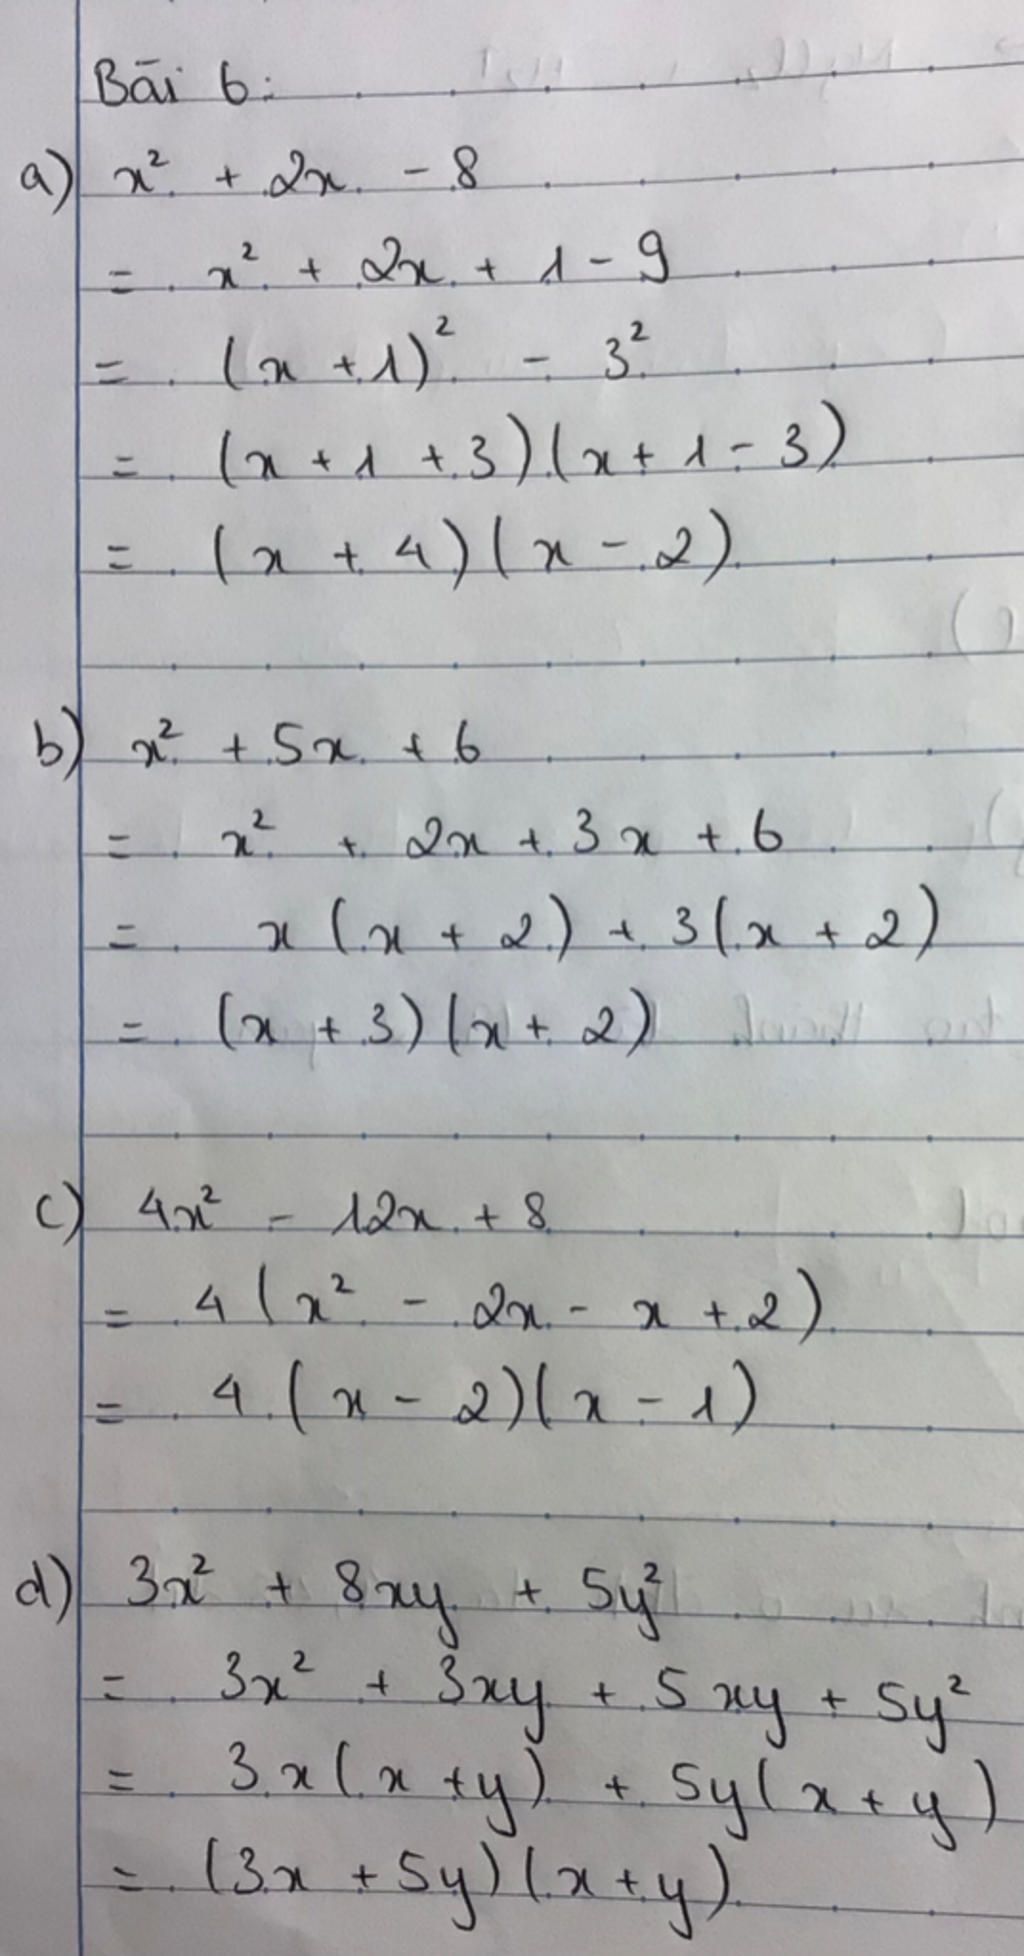 Bài 6:
a) x² + 2x - 8
= x² + 2x + 1 - 9
= (x + 1)² - 3²
= (x + 1 + 3)(x + 1 - 3)
= (x + 4)(x - 2)
b) x² + 5x + 6
= x² + 2x + 3x + 6
= x(x + 2) + 3(x + 2)
= (x + 3)(x + 2)
c) 4x² - 12x + 8
= 4(x² - 2x - x + 2)
= 4(x - 2)(x - 1)
d) 3x² + 8xy + 5y²
= 3x² + 3xy + 5xy + 5y²
= 3x(x + y) + 5y(x + y)
= (3x + 5y)(x + y)